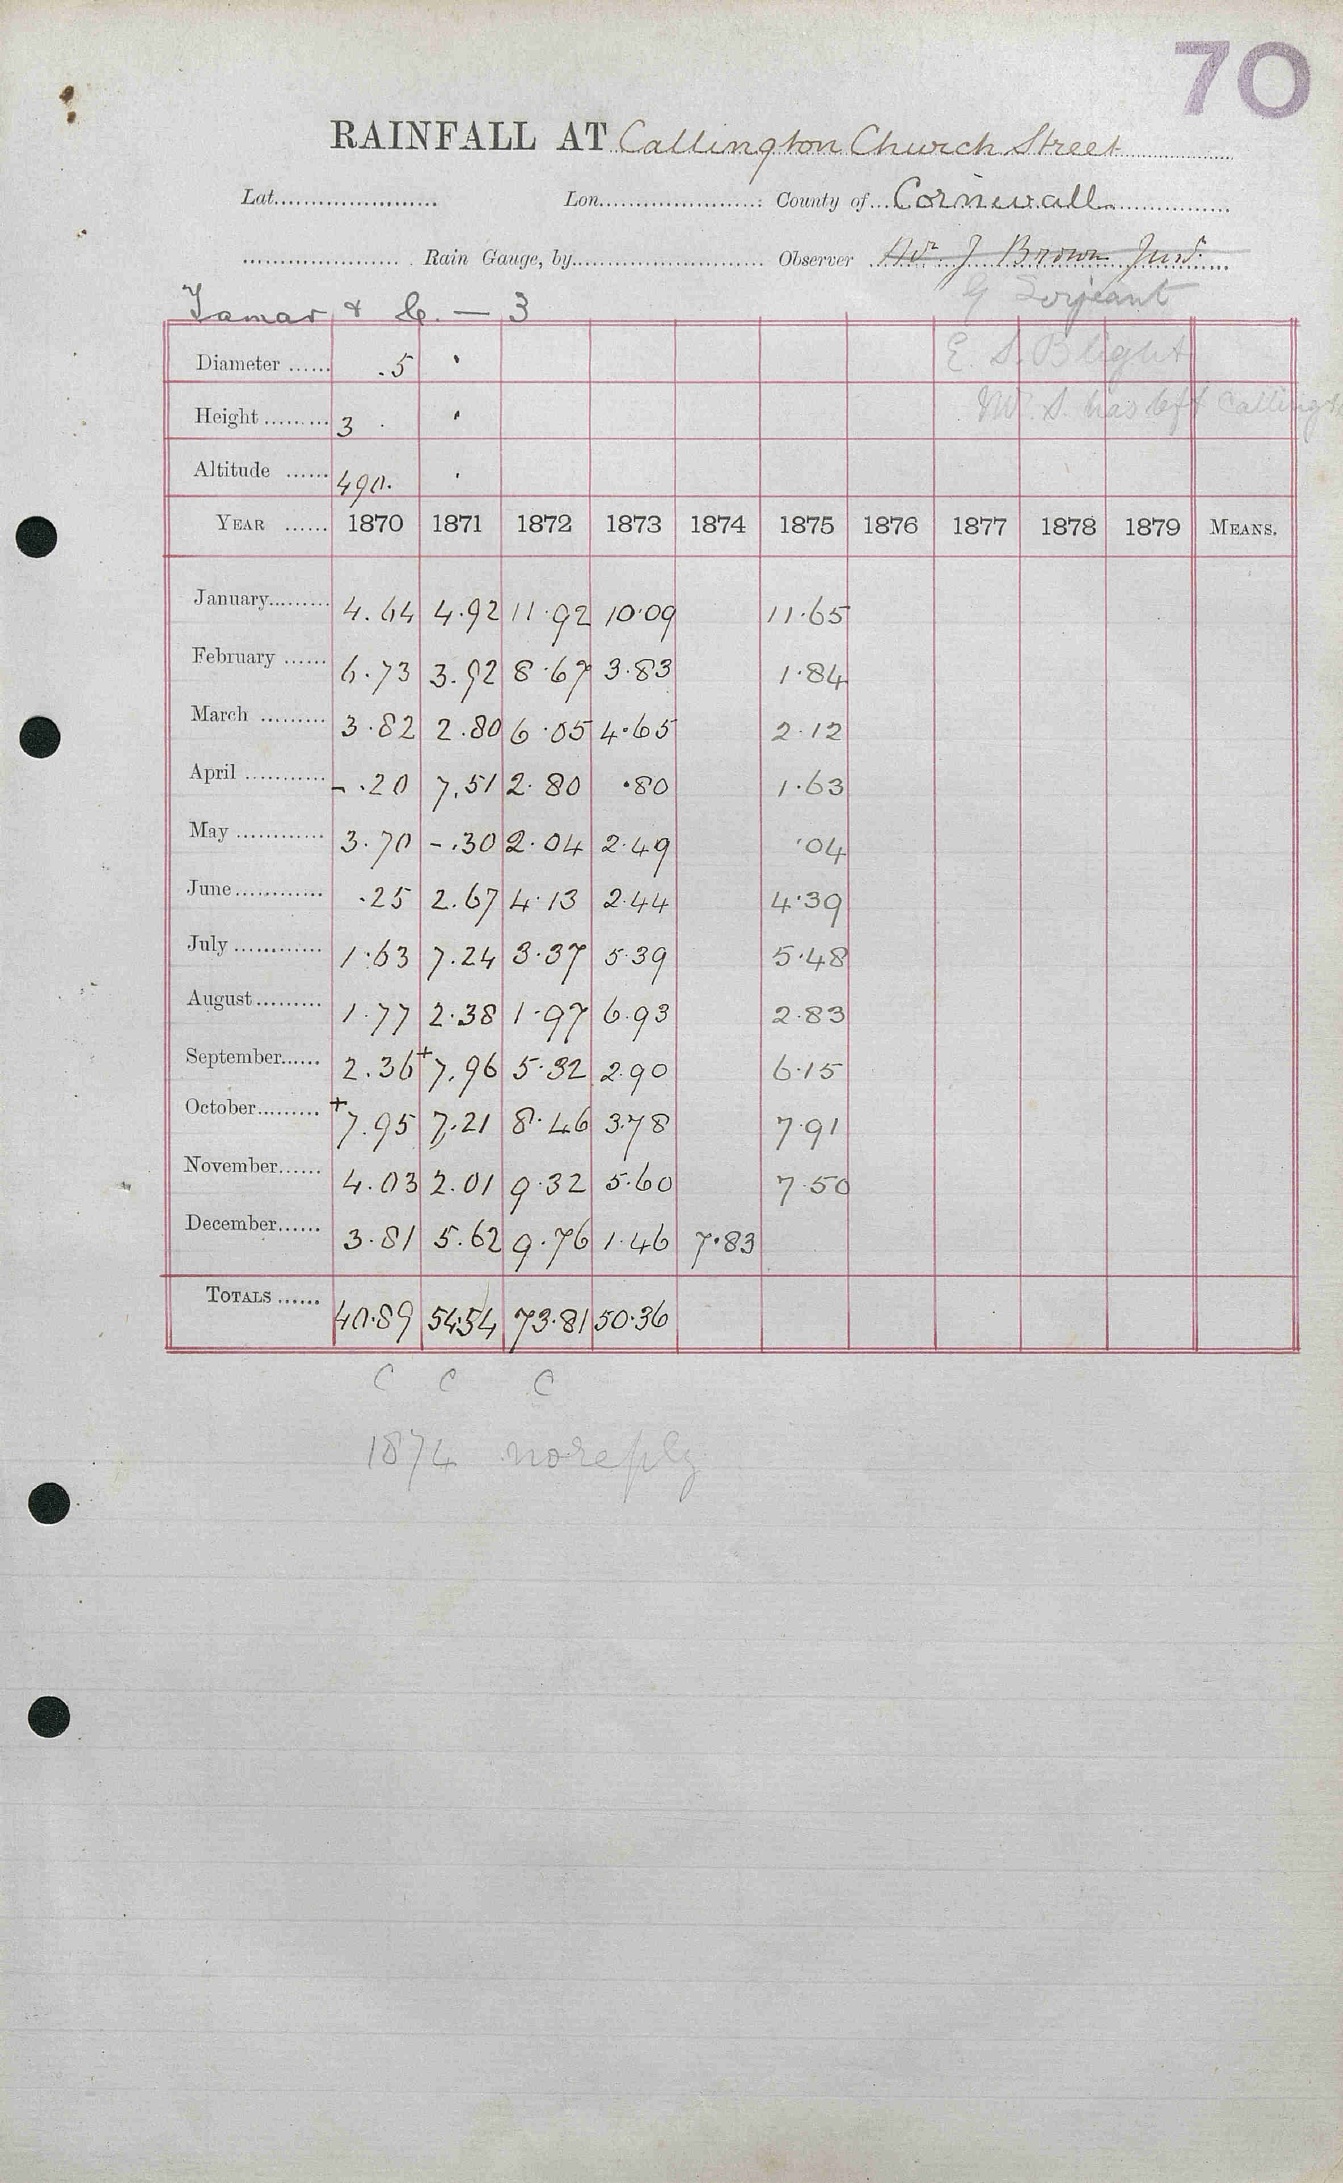 70
RAINFALL AT Callington Church Street
Lat. Lon. County of Cornwall
Rain Gauge, by Observer Mr J Brown Junr.
G Serjeant
Tamar & C. — 3
E. S. Blight
Diameter ...... .5 '
Mr. S. has left Callingt
Height ......... 3 . '
Altitude ...... 490. '
YEAR ...... 1870 1871 1872 1873 1874 1875 1876 1877 1878 1879 MEANS.
January......... 4.64 4.92 11.92 10.09 11.65
February ...... 6.73 3.92 8.67 3.83 1.84
March ......... 3.82 2.80 6.05 4.65 2.12
April ........... - .20 7.51 2.80 .80 1.63
May ............ 3.70 - .30 2.04 2.49 .04
June............ .25 2.67 4.13 2.44 4.39
July ............ 1.63 7.24 3.37 5.39 5.48
August......... 1.77 2.38 1.97 6.93 2.83
September...... 2.36 +7.96 5.32 2.90 6.15
October......... +7.95 7.21 8.46 3.78 7.91
November...... 4.03 2.01 9.32 5.60 7.50
December...... 3.81 5.62 9.76 1.46 7.83
TOTALS ...... 40.89 54.54 73.81 50.36
C C C
1874 no reply